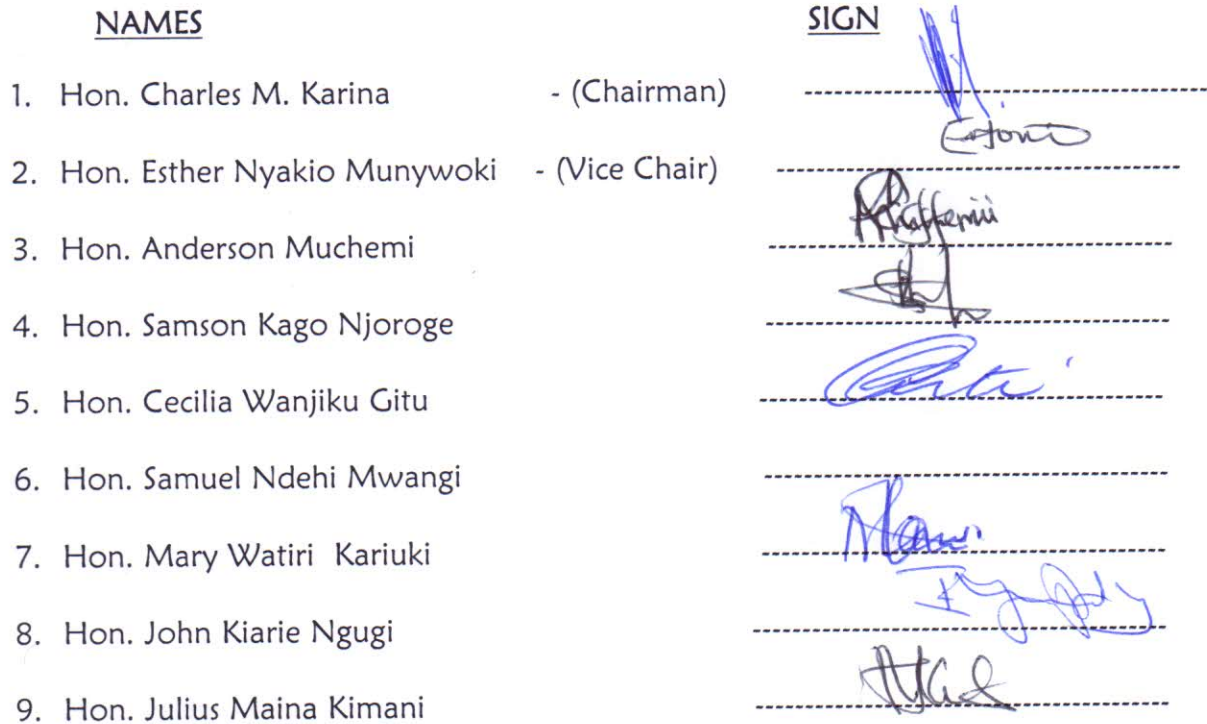 NAMES SIGN
1. Hon. Charles M. Karina - (Chairman)
2. Hon. Esther Nyakio Munywoki - (Vice Chair)
3. Hon. Anderson Muchemi
4. Hon. Samson Kago Njoroge
5. Hon. Cecilia Wanjiku Gitu
6. Hon. Samuel Ndehi Mwangi
7. Hon. Mary Watiri Kariuki
8. Hon. John Kiarie Ngugi
9. Hon. Julius Maina Kimani